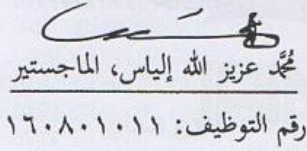 محمّد عزيز الله إلياس، الماجستير
رقم التوظيف: ١٦٠٨٠١٠١١